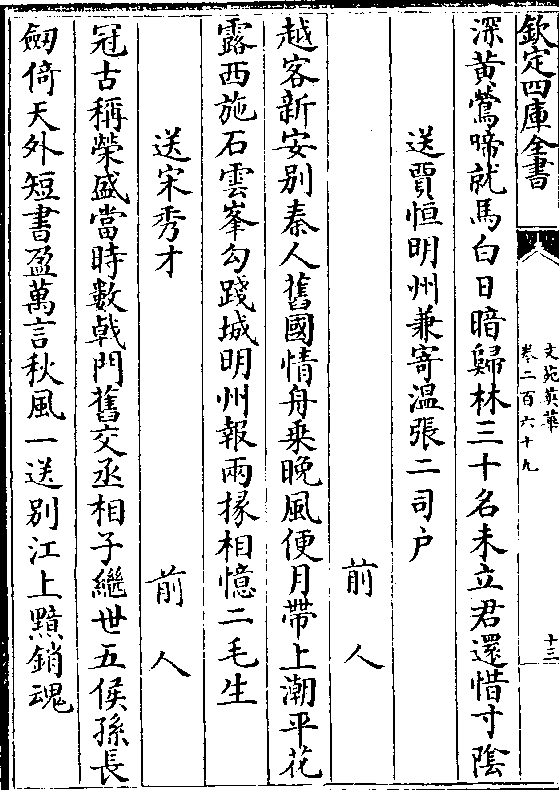 欽定四庫全書
文苑英華
卷二百六十九
十三
深黄鶯啼就馬白日暗歸林三十名未立君還惜寸陰
送賈恒明州兼寄温張二司户
前人
越客新安別秦人舊國情舟乗晚風便月帶上潮平花
露西施石雲峯勾踐城明州報兩掾相憶二毛生
送宋秀才
前人
冠古稱榮盛當時數戟門舊交丞相子繼世五侯孫長
劒倚天外短書盈萬言秋風一送別江上黯銷魂